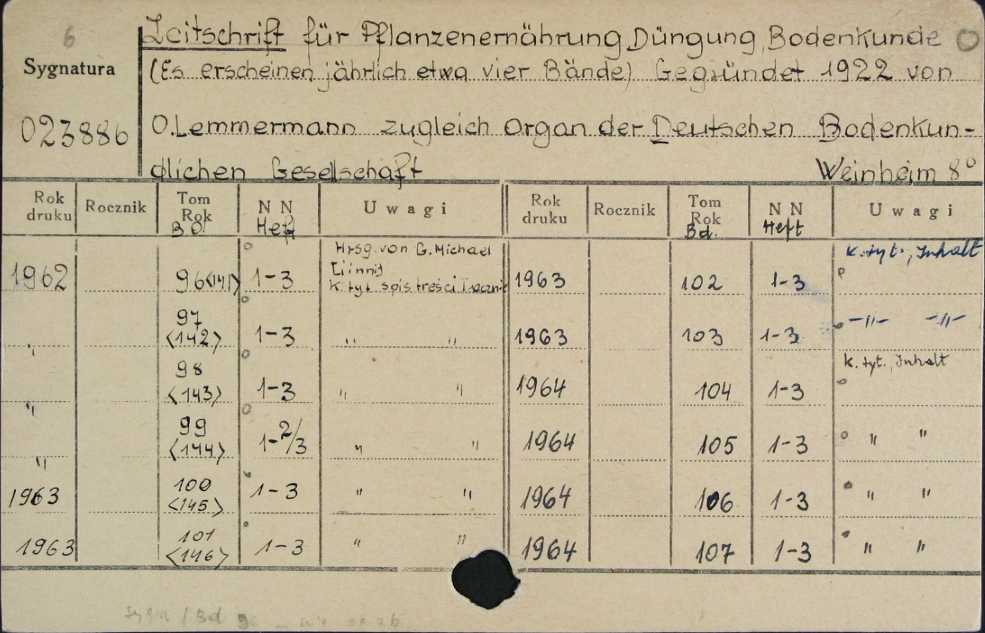 6
Zeitschrift für Pflanzenernährung, Düngung, Bodenkunde
Sygnatura
(Es erscheinen jährlich etwa vier Bände) Gegründet 1922 von
023886
O. Lemmermann zugleich Organ der Deutschen Bodenkun-
dlichen Gesellschaft Weinheim 8°
Rok druku Rocznik Tom Rok Bd. N N Heft Uwagi Rok druku Rocznik Tom Rok Bd. N N Heft Uwagi
Hrsg. von G. Michael
k. tyt., Inhalt
1962 96 <141> 1-3
[i inni]
k. tyt spis treści
1963 102 1-3
" 97 <142> 1-3 " " 1963 103 1-3 -"- -"-
k. tyt., Inhalt
" 98 <143> 1-3 " " 1964 104 1-3
" 99 <144> 1-2/3 " " 1964 105 1-3 " "
1963 100 <145> 1-3 " " 1964 106 1-3 " "
1963 101 <146> 1-3 " " 1964 107 1-3 " "